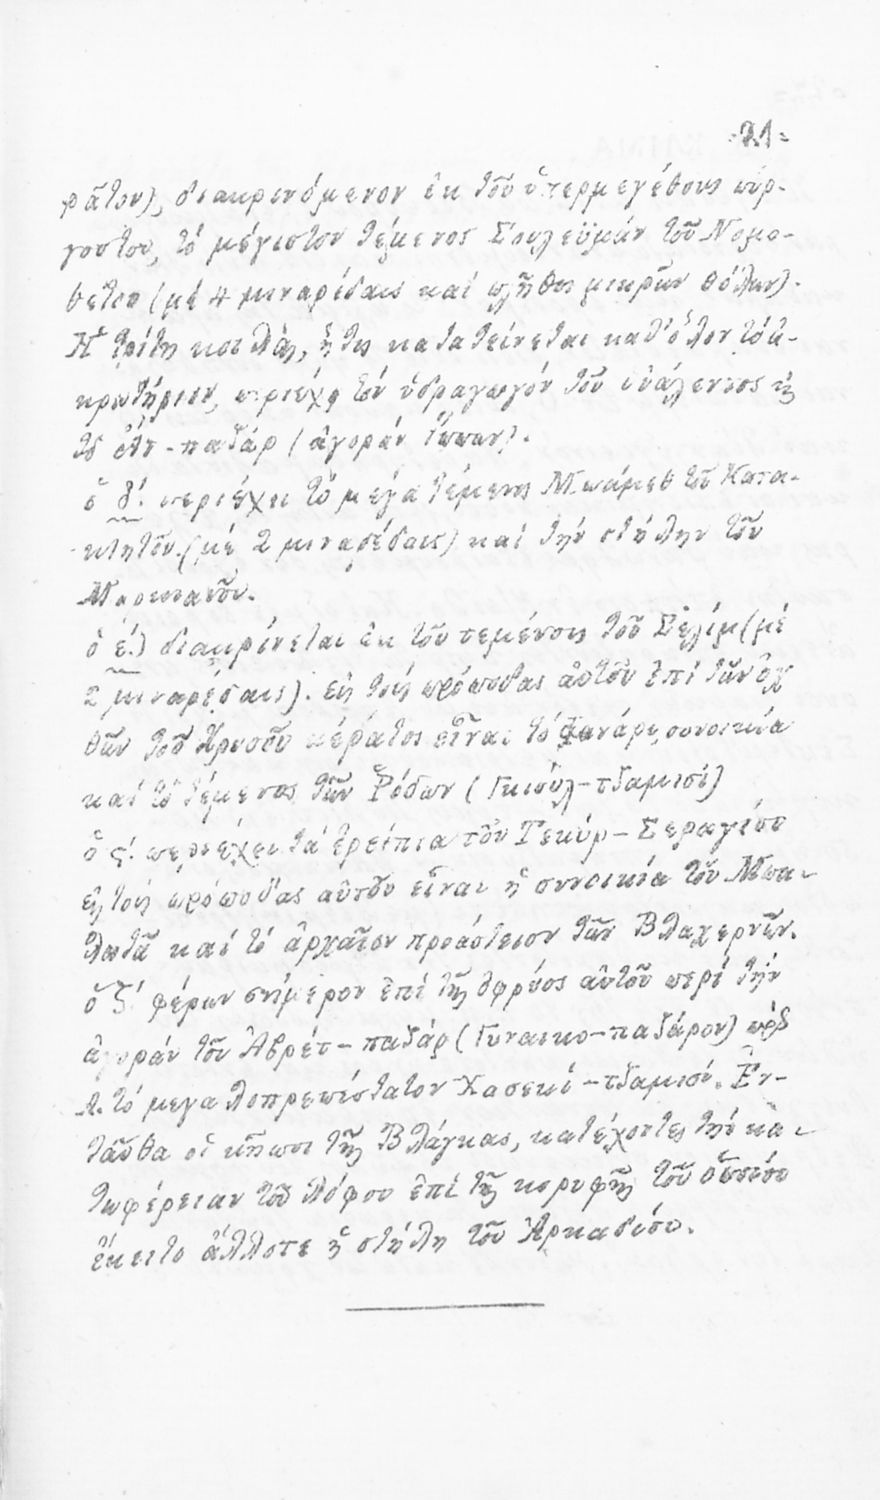 -21-
φᾶτον), διακρινόμενον ἐκ τοῦ ὑπερμεγέθους πύρ-
γου του, τὸ μέγιστον τέμενος Σουλεϋμάν τοῦ Νομο-
θέτου (μέ 4 μιναρέδαις καί πλῆθος μικρῶν θόλων).
Ἡ τρίτη κοιλάς, ἥτις κατατείνεται καθ' ὅλον τό ἀ-
κρωτήριον, περιέχει τόν ὑδραγωγόν τοῦ Οὐάλεντος κ̀
τό Ἀτ-παζάρ (ἀγοράν ἵππων).
ὁ δ΄. περιέχει τό μέγα τέμενος Μωάμεθ τοῦ Κατα-
κτητοῦ (μέ 2 μιναρέδαις) καί τήν στήλην τοῦ
Μαρκιανοῦ.
ὁ έ.) διακρίνεται ἐκ τοῦ τεμένους τοῦ Σελίμ (μέ
2 μιναρέδαις). εἰς τούς πρόποδας αὐτοῦ ἐπί τῶν ὀχ
θῶν τοῦ Χρυσοῦ κέρατος εἶναι τό Φανάρι, συνοικία
καί τό τέμενος τῶν Ῥόδων (Γκιούλ-τζαμισί)
ὁ ς΄. περιέχει τά ἐρείπια τοῦ Τεκύρ-Σεραγίου
εἰς τούς πρόποδας αὐτοῦ εἶναι ἡ συνοικία τοῦ Μπα-
λατᾶ καί τό ἀρχαῖον προάστειον τῶν Βλαχερνῶν.
ὁ ζ΄ φέρων σήμερον ἐπί τῆς ὀφρύος αὐτοῦ περί τήν
ἀγοράν τοῦ Ἀβρέτ-παζάρ (Γυναικο-παζάρου) πρός
Δ. τό μεγαλοπρεπέστατον Χασεκί-τζαμισί. Ἐν-
ταῦθα οἱ κῆποι τῆς Βλάγκας, κατέχοντες τήν κα-
τωφέρειαν τοῦ λόφου ἐπί τῆς κορυφῆς τοῦ ὁποίου
ἔκειτο ἄλλοτε ἡ στήλη τοῦ Ἀρκαδίου.